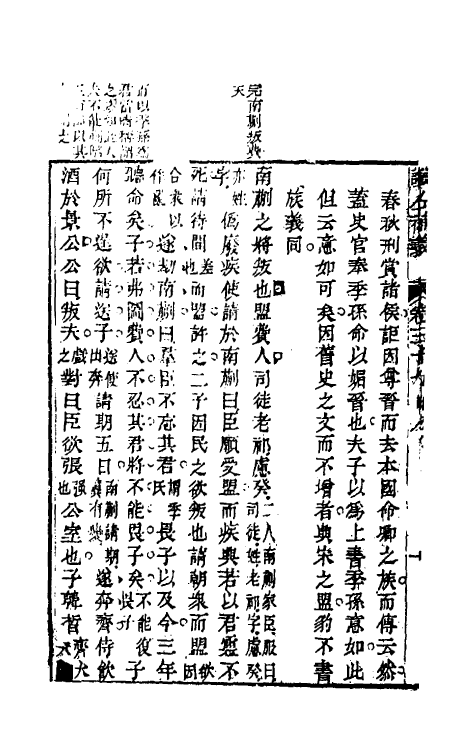 春秋刑賞諸侯詎因尊晉而去本國命卿之族而傳云然
蓋史官奉季孫命以媚晉也夫子以爲上書季孫意如此
但云意如可矣因舊史之文而不增者與宋之盟豹不書
族義同
南蒯之將叛也盟費人司徒老祁慮癸二人南蒯家臣服曰司徒姓老祁字慮癸
亦姓字僞廢疾使請於南蒯曰臣願受盟而疾興若以君靈不
死請待間也差而盟許之二子因民之欲叛也請朝衆而盟欲因
合衆以作亂遂劫南蒯曰羣臣不忘其君謂季氏畏子以及今三年
聽命矣子若弗圖費人不忍其君將不能畏子矣不能復畏子子
何所不逞欲請送子送使出奔請期五日南蒯請期冀有變遂奔齊侍飲
酒於景公公曰叛夫戲之對曰臣欲張強也公室也子韓晳齊大夫